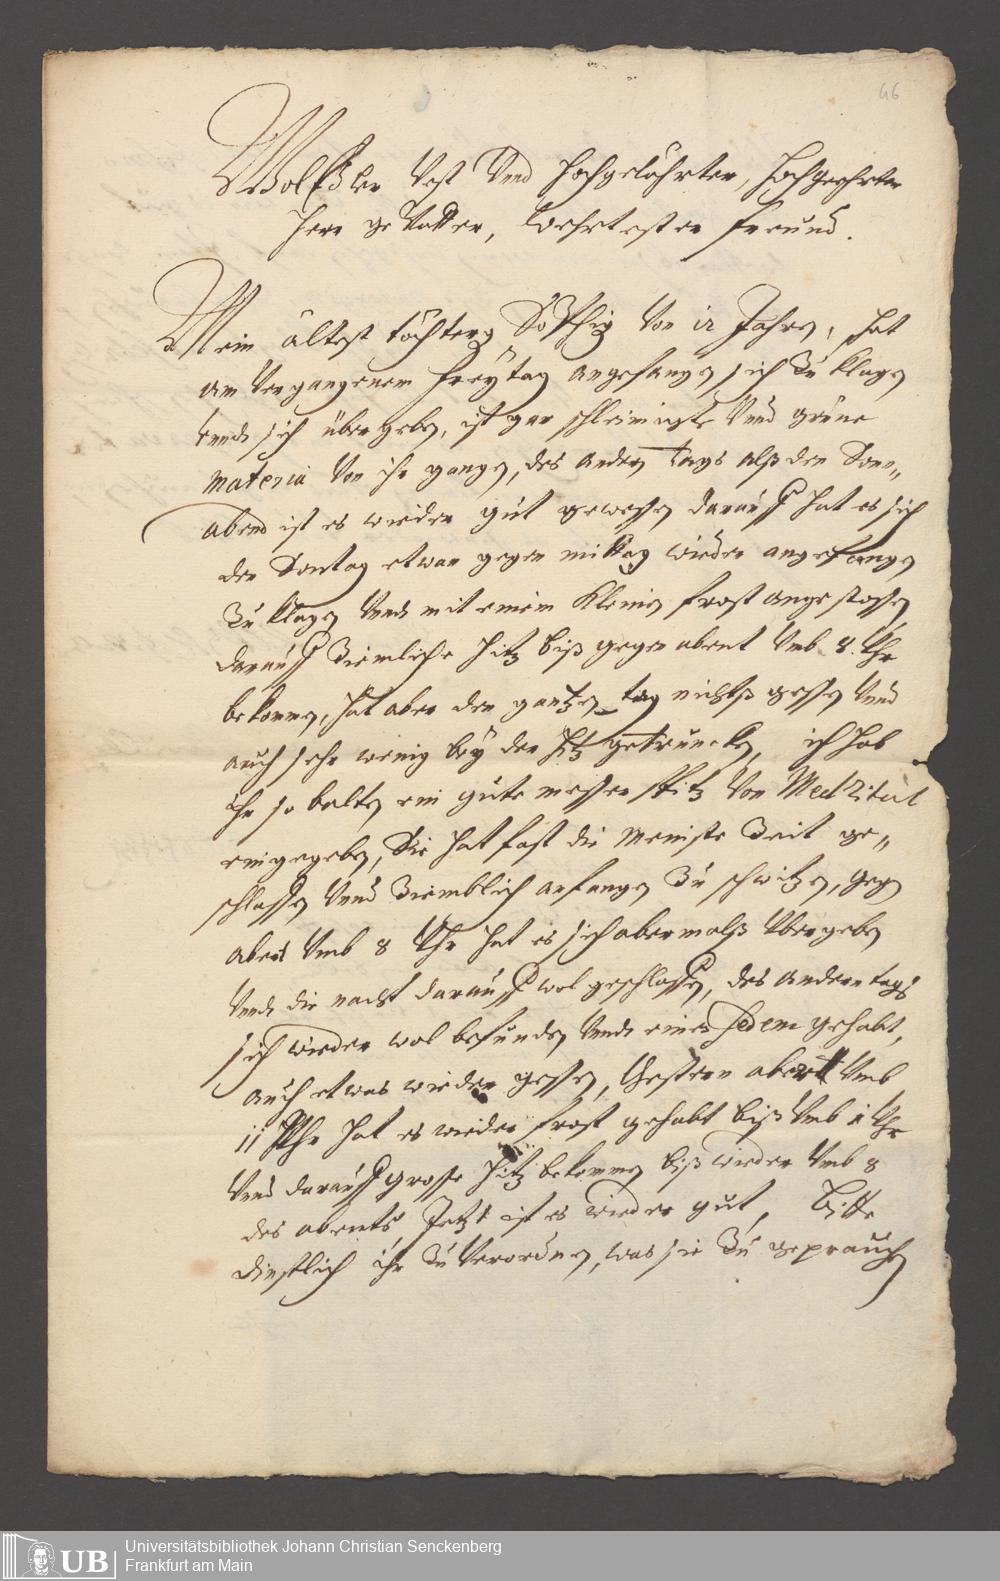 46
Wol Edler Vest Vnnd Hochgelährter, Hochgeehrter
Herr geVatter, Wehrtester Freund.
Mein ältest töchterg Sophig Von 12 Jahrn, hat
am Vergangenem Freÿtag angefangen sich Zu klagen
Vnndt sich übergeben, ist gar schleimigte Vnnd grüne
materia Von ihr gangen, des andern tags alß den Sonn„
abend ist es wieder gut gewesen darauff hat es sich
den Sontag etwan gegen mittag wieder angefangen
Zu klagen Vnndt mit einem kleinen frost angestossen
darauff Ziemliche hitz biß gegen abent Vmb 8. Vhr
bekommen, hat aber den gantzen tag nichts gessen Vnnd
auch sehr wenig beÿ der hitz getruncken, ich hab
ihr so balten ein gute messer spitz Von
eingegeben, Sie hat fast die meniste Zeit ge„
schlaffen Vnnd Ziemblich anfangen Zu schwitzen, gegen
abent Vmb 8 Vhr hat es sich abermalß Vbergeben
Vnndt die nacht darauff wol geschlaffen, des andern tags
sich wieder wol befunden Vnndt einen sedem gehabt,
auch etwas wieder gessen, Gestern aber Vmb
11 Vhr hat es wieder frost gehabt biß Vmb 1 Vhr
Vnnd darauff grosse hitz bekommen biß wieder Vmb 8
des abents, Jetzt ist es wieder gut, Bitte
dinstlich ihr Zu Verordnen, was sie Zu geprauchen
UB
Universitätsbibliothek Johann Christian Senckenberg
Frankfurt am Main